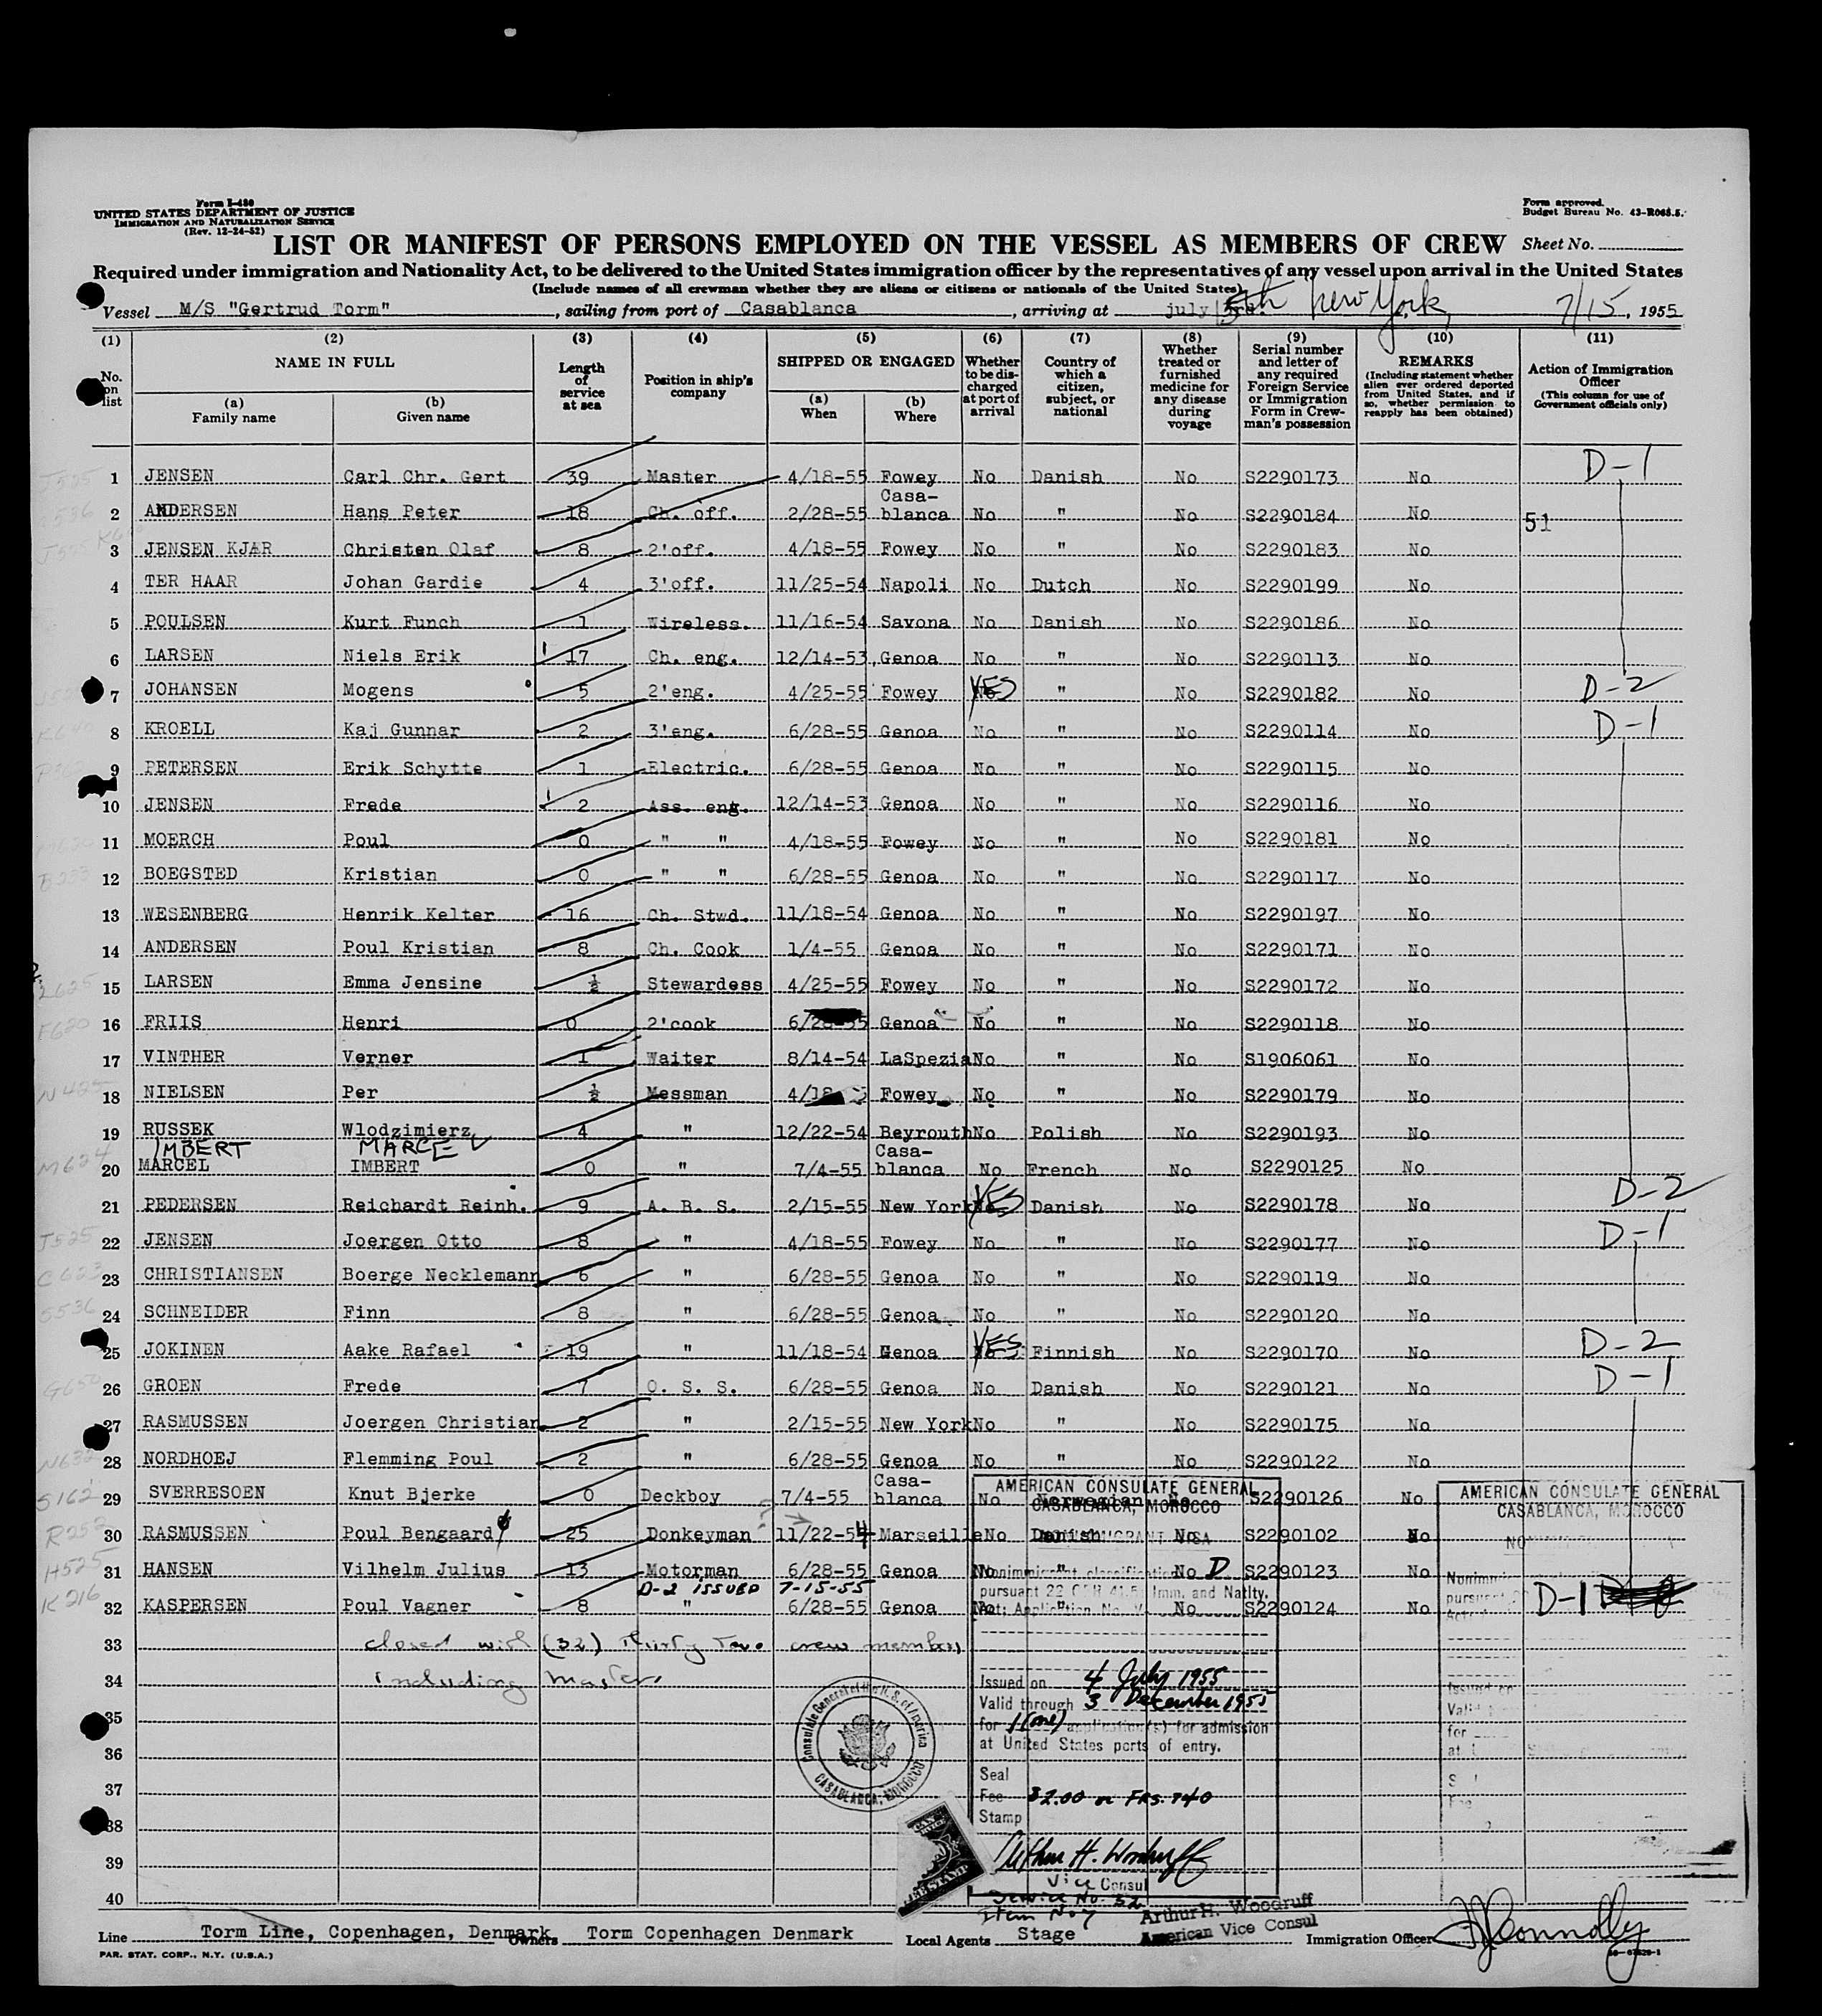 Form I-480
UNITED STATES DEPARTMENT OF JUSTICE
IMMIGRATION AND NATURALIZATION SERVICE
(Rev. 12-24-52)
Form approved.
Budget Bureau No. 43-R065.5.
LIST OR MANIFEST OF PERSONS EMPLOYED ON THE VESSEL AS MEMBERS OF CREW Sheet No.
Required under immigration and Nationality Act, to be delivered to the United States immigration officer by the representatives of any vessel upon arrival in the United States
(Include names of all crewman whether they are aliens or citizens or nationals of the United States)
Vessel M/S "Gertrud Torm", sailing from port of Casablanca, arriving at july 15th New York, 7/15, 1955
(1) (2) (3) (4) (5) (6) (7) (8) (9) (10) (11)
No. on list NAME IN FULL (a) Family name (b) Given name Length of service at sea Position in ship's company SHIPPED OR ENGAGED (a) When (b) Where Whether to be discharged at port of arrival Country of which a citizen, subject, or national Whether treated or furnished medicine for any disease during voyage Serial number and letter of any required Foreign Service or Immigration Form in Crewman's possession REMARKS (Including statement whether alien ever ordered deported from United States, and if so, whether permission to reapply has been obtained) Action of Immigration Officer (This column for use of Government officials only)
J525 1 JENSEN Carl Chr. Gert 39 Master 4/18-55 Fowey No Danish No S2290173 No D-1
2 ANDERSEN Hans Peter 18 Ch. off. 2/28-55 Casa-blanca No " No S2290184 No 51
3 JENSEN KJAR Christen Olaf 8 2'off. 4/18-55 Fowey No " No S2290183 No
4 TER HAAR Johan Gardie 4 3'off. 11/25-54 Napoli No Dutch No S2290199 No
5 POULSEN Kurt Funch 1 Wireless. 11/16-54 Savona No Danish No S2290186 No
6 LARSEN Niels Erik 17 Ch. eng. 12/14-53 Genoa No " No S2290113 No
7 JOHANSEN Mogens 5 2'eng. 4/25-55 Fowey YES " No S2290182 No D-2
8 KROELL Kaj Gunnar 2 3'eng. 6/28-55 Genoa No " No S2290114 No D-1
9 PETERSEN Erik Schytte 1 Electric. 6/28-55 Genoa No " No S2290115 No
10 JENSEN Frede 2 Ass. eng. 12/14-53 Genoa No " No S2290116 No
11 MOERCH Poul 0 " " 4/18-55 Fowey No " No S2290181 No
12 BOEGSTED Kristian 0 " " 6/28-55 Genoa No " No S2290117 No
13 WESENBERG Henrik Kelter 16 Ch. Stwd. 11/18-54 Genoa No " No S2290197 No
14 ANDERSEN Poul Kristian 8 Ch. Cook 1/4-55 Genoa No " No S2290171 No
L625 15 LARSEN Emma Jensine ½ Stewardess 4/25-55 Fowey No " No S2290172 No
F620 16 FRIIS Henri 0 2'cook 6/28-55 Genoa No " No S2290118 No
17 VINTHER Verner 1 Waiter 8/14-54 LaSpezia No " No S1906061 No
N425 18 NIELSEN Per ½ Messman 4/18 Fowey No " No S2290179 No
19 RUSSEK Wlodzimierz 4 " 12/22-54 Beyrouth No Polish No S2290193 No
IMBERT MARCEL
M624 20 MARCEL IMBERT 0 " 7/4-55 Casa-blanca No French No S2290125 No
21 PEDERSEN Reichardt Reinh. 9 A. B. S. 2/15-55 New York YES Danish No S2290178 No D-2
J525 22 JENSEN Joergen Otto 8 " 4/18-55 Fowey No " No S2290177 No D-1
C623 23 CHRISTIANSEN Boerge Necklemann 6 " 6/28-55 Genoa No " No S2290119 No
S536 24 SCHNEIDER Finn 8 " 6/28-55 Genoa No " No S2290120 No
25 JOKINEN Aake Rafael 19 " 11/18-54 Genoa YES Finnish No S2290170 No D-2
G650 26 GROEN Frede 7 O. S. S. 6/28-55 Genoa No Danish No S2290121 No D-1
27 RASMUSSEN Joergen Christian 2 " 2/15-55 New York No " No S2290175 No
N632 28 NORDHOEJ Flemming Poul 2 " 6/28-55 Genoa No " No S2290122 No
S162 29 SVERRESOEN Knut Bjerke 0 Deckboy 7/4-55 Casa-blanca No Norwegian No S2290126 No
R252 30 RASMUSSEN Poul Bengaard 25 Donkeyman 11/22-54 Marseille No Danish No S2290102 No
H525 31 HANSEN Vilhelm Julius 13 Motorman 6/28-55 Genoa No " No S2290123 No
D-2 ISSUED 7-15-55
K216 32 KASPERSEN Poul Vagner 8 " 6/28-55 Genoa No " No S2290124 No D-1
33 closed with (32) Thirty Two crew members
34 including Master
35
36
37
38
39
40
AMERICAN CONSULATE GENERAL
CASABLANCA, MOROCCO
NONIMMIGRANT VISA
Nonimmigrant classification D
pursuant 22 CFR 41.5 Imm. and Natlty.
Act; Application No. V-
Issued on 4 July 1955
Valid through 3 December 1955
for 1 (one) application(s) for admission
at United States ports of entry.
Seal
Fee $2.00 or FRS. 740
Stamp
Arthur H. Woodruff
Vice Consul
Service No. 52
Item No 7
Arthur H. Woodruff
American Vice Consul
Consulate General of the U.S. of America
CASABLANCA, MOROCCO
AMERICAN CONSULATE GENERAL
CASABLANCA, MOROCCO
Line Torm Line, Copenhagen, Denmark Owners Torm Copenhagen Denmark Local Agents Stage Immigration Officer
PAR. STAT. CORP., N.Y. (U.S.A.)